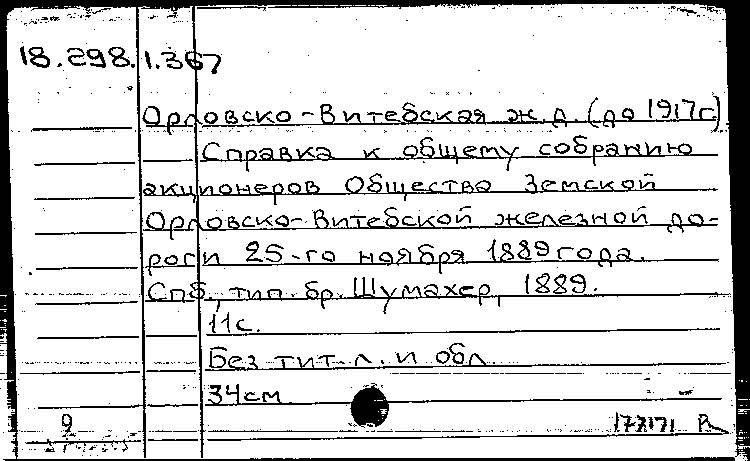 18.298.1.367
Орловско-Витебская ж.д. (до 1917г)
Справка к общему собранию
акционеров Общество Земской
Орловско-Витебской железной до-
роги 25-го ноября 1889 года.
Спб., тип. бр. Шумахер, 1889.
11с.
Без тит. л. и обл.
34см
9